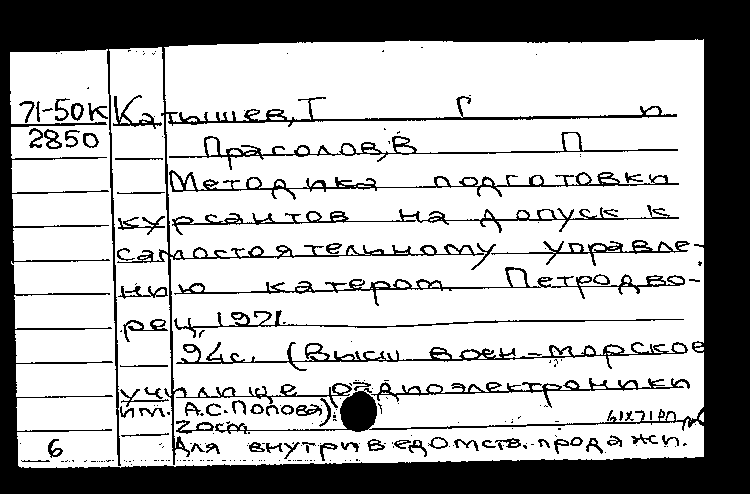 71-50К Катышев, Т Г п
2850 Прасолов, В П
Методика подготовки
курсантов на допуск к
самостоятельному управле-
нию катером. Петродво-
рец, 1971.
94с. (Высш воен-морское
училище радиоэлектроники
им. А.С.Попова)
20см.
6 Для внутриведомств. продажи.